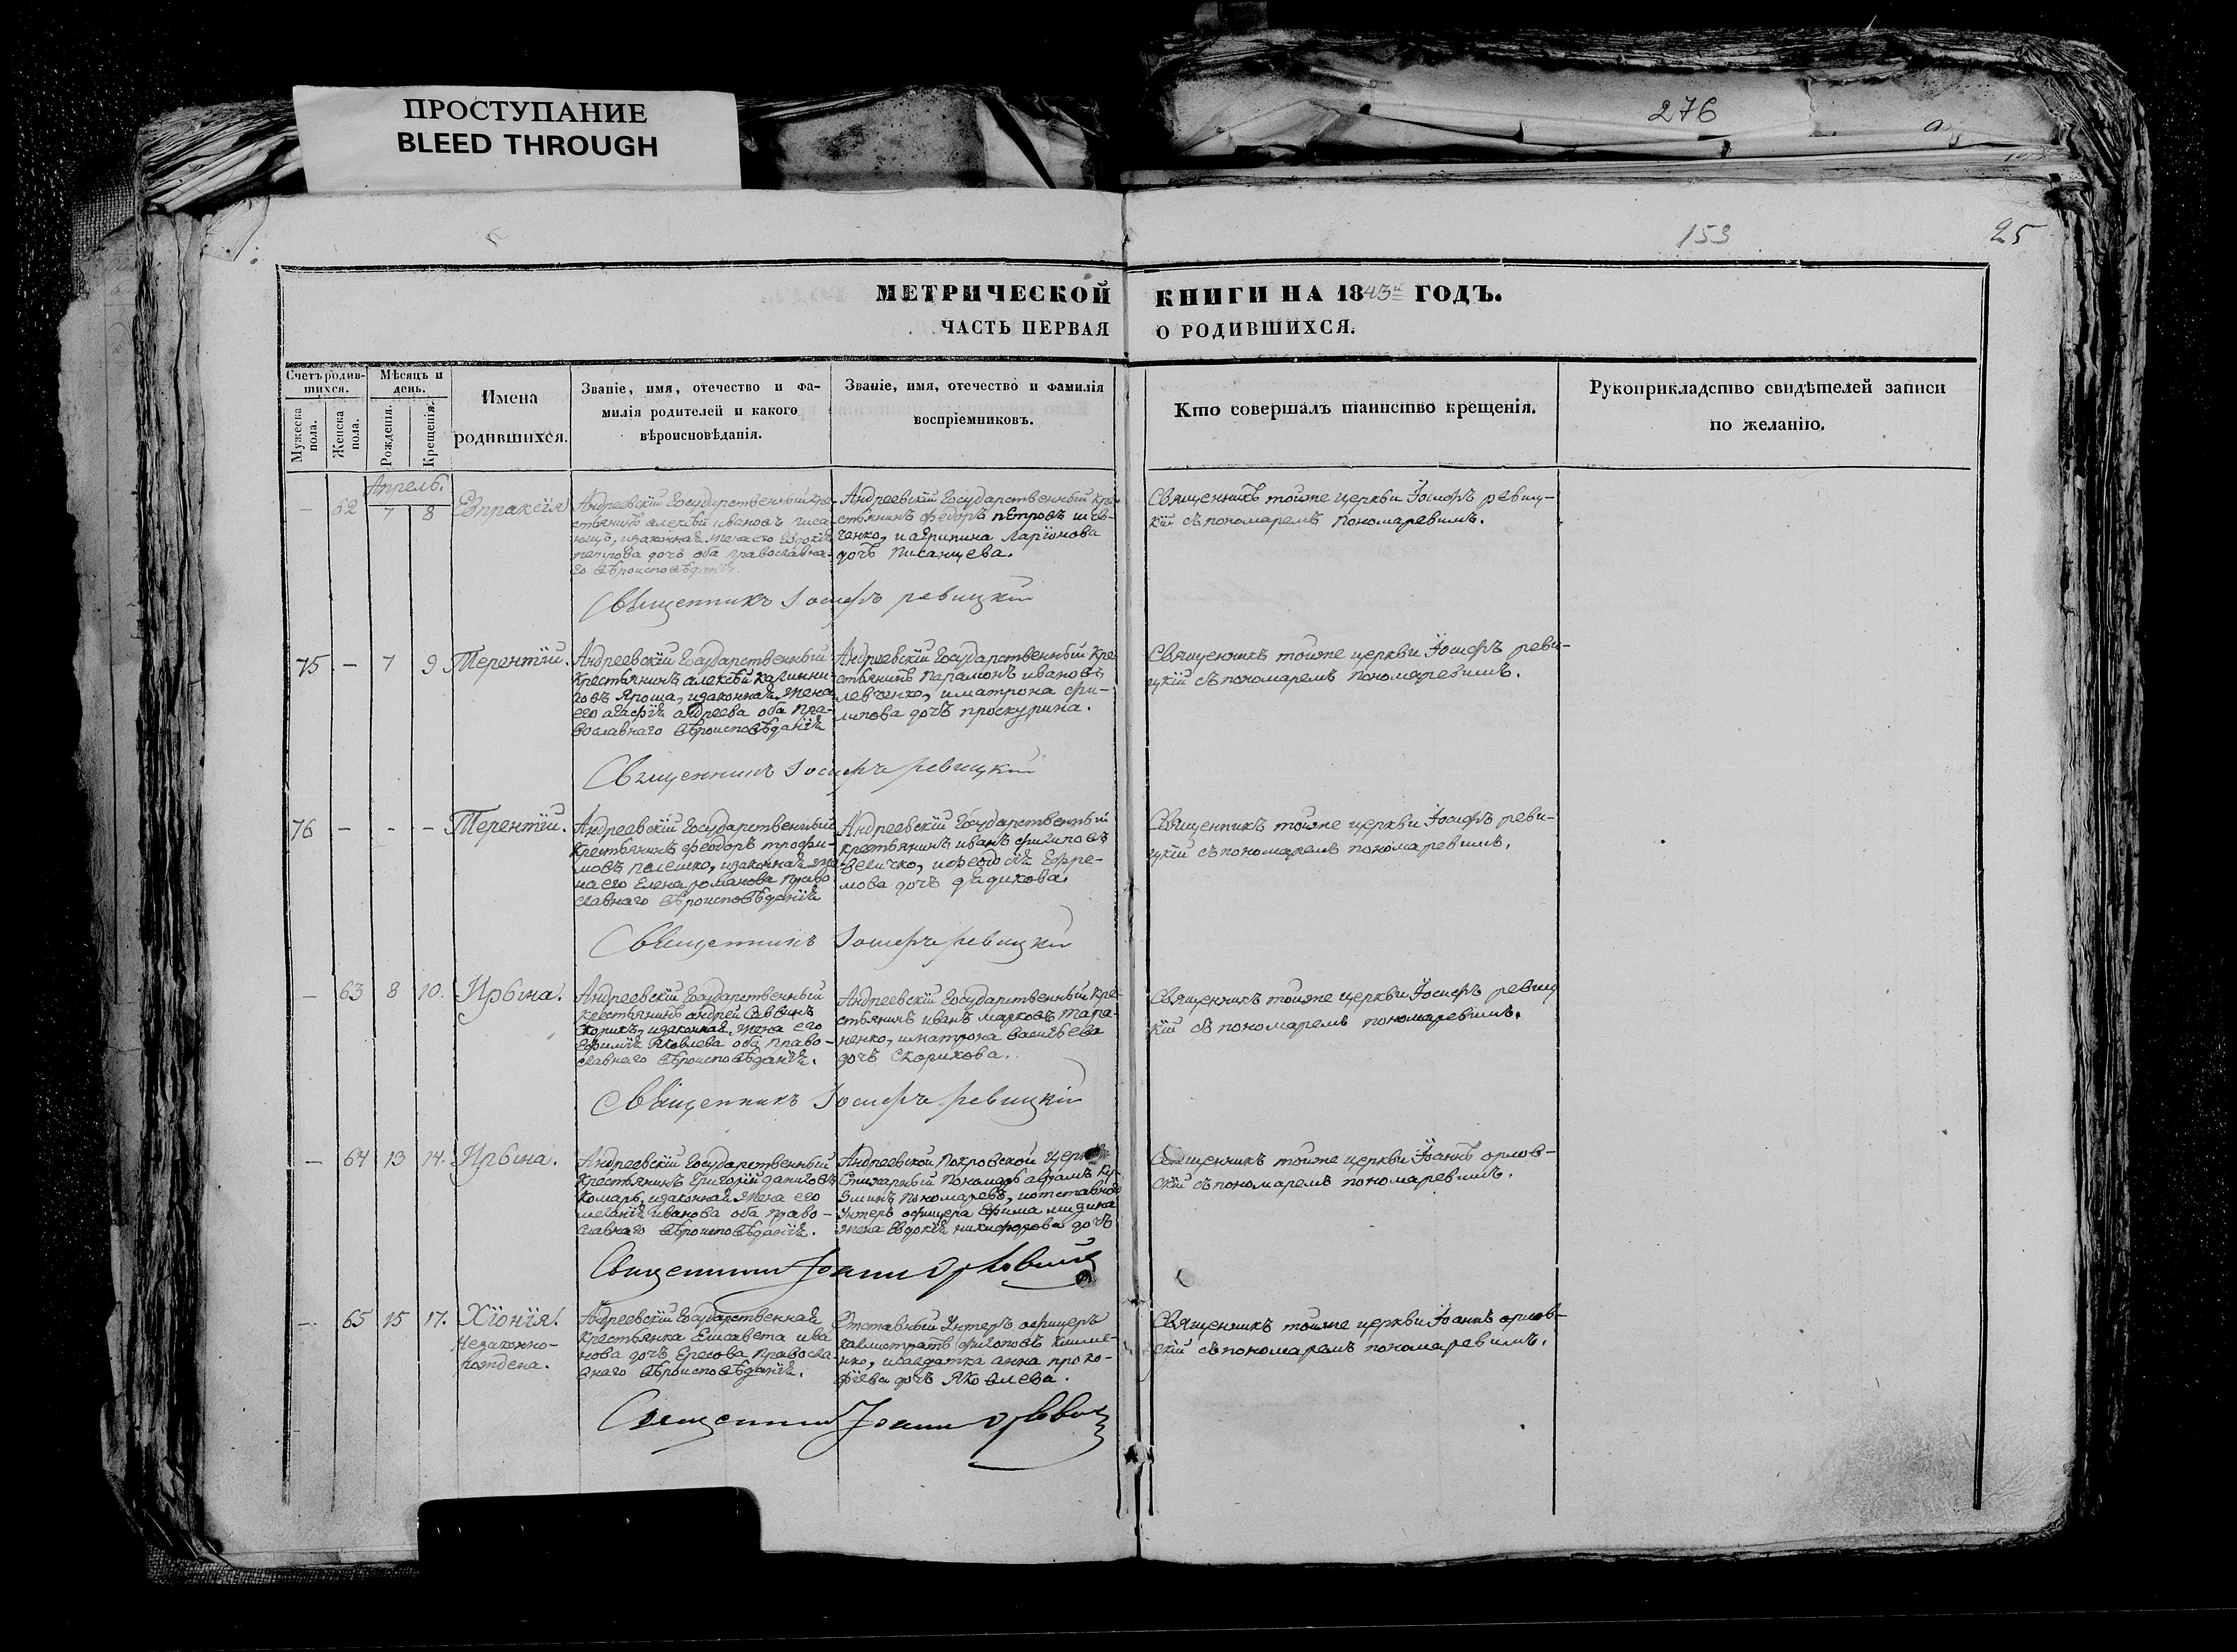 ПРОСТУПАНИЕ
BLEED THROUGH
276
153
25
МЕТРИЧЕСКОЙ КНИГИ НА 1843й ГОДЪ.
ЧАСТЬ ПЕРВАЯ О РОДИВШИХСЯ.
Счетъ родив-
шихся.
Мужеска
пола.
Женска
пола.
Мѣсяцъ и
день.
Рожденія.
Крещенія.
Имена
родившихся.
Званіе, имя, отечество и фа-
милія родителей и какого
вѣроисповѣданія.
Званіе, имя, отечество и фамилія
воспріемниковъ.
Кто совершалъ таинство крещенія.
Рукоприкладство свидѣтелей записи
по желанію.
Апрель.
— 62 7 8 Евпраксія
Андреевскій Государственный кре-
стьянинъ алексѣй ивановъ писа-
нецъ, изаконная жена его
петрова дочь оба православна-
го вѣроисповѣданія.
Андреевскій Государственный кре-
стьянинъ федоръ петровъ шев-
ченко, иагрипина Ларіонова
дочь Писанцева.
Священникъ тойже церкви Іосифъ ревиц-
кій съ пономаремъ Пономаревимъ.
Священникъ Іосифъ ревицкій
75 — 7 9 Терентій.
Андреевскій Государственный
крестьянинъ алексѣй калинни-
ковъ Яроша, изаконная жена
его агафія андреева оба пра-
вославнаго вѣроисповѣданія
Андреевскій Государственный кре-
стьянинъ парамонъ ивановъ
левченко, иматрона фи-
липова дочь проскурина.
Священникъ тойже церкви Іосифъ реви-
цкій съ пономаремъ пономаревимъ.
Священникъ Іосифъ ревицкій
76 — - — Терентій.
Андреевскій Государственный
крестьянинъ феодоръ трофи-
мовъ палешко, изаконная же-
на его Елена романова право
славнаго вѣроисповѣданія
Андреевскій Государственный
крестьянинъ иванъ филиповъ
величко, ифеодосія Ефре-
мова дочь дѣдикова.
Священникъ тойже церкви Іосифъ реви-
цкій съ пономаремъ пономаревимъ.
Священникъ Іосифъ ревицкій
— 63 8 10. Ирына.
Андреевскій Государственный
крестьянинъ андрей Саввинъ
Скорикъ, изаконная жена его
Ефимія Яковлева оба право-
славнаго вѣроисповѣданія.
Андреевскій Государственный кре-
стьянинъ иванъ марковъ тара-
ненко, иматрона васильева
дочь Скорикова.
Священникъ тойже церкви Іосифъ ревиц
кій съ пономаремъ пономаревимъ.
Священникъ Іосифъ ревицкій
— 64 13 14. Ирына.
Андреевскій Государственный
крестьянинъ Григорій даниловъ
комаръ, изаконная жена его
меланія иванова оба право-
славнаго вѣроисповѣданія.
Андреевской Покровской
Стихарный Пономарь абрамъ Ку-
змичъ Пономаревъ, иотставнаго
Унтеръ офицера Ефима
жена Евдокія никифорова дочь
Священникъ тойже церкви Іоаннъ орлов-
скій съ пономаремъ пономаревимъ.
Священникъ Іоаннъ Орловскій
— 65 15 17. Хіонія.
Незаконно-
рождена.
Андреевскій Государственная
крестьянка Елисавета ива
нова дочь Ересова православ-
внаго вѣроисповѣданія.
Отставный Унтеръ офицеръ
калистратъ филиповъ Климе-
нко, исалдатка анна проко-
фіева дочь Яковлева.
Священникъ тойже церкви Іоаннъ орлов-
скій съ пономаремъ пономаревимъ.
Священникъ Іоаннъ Орловскій